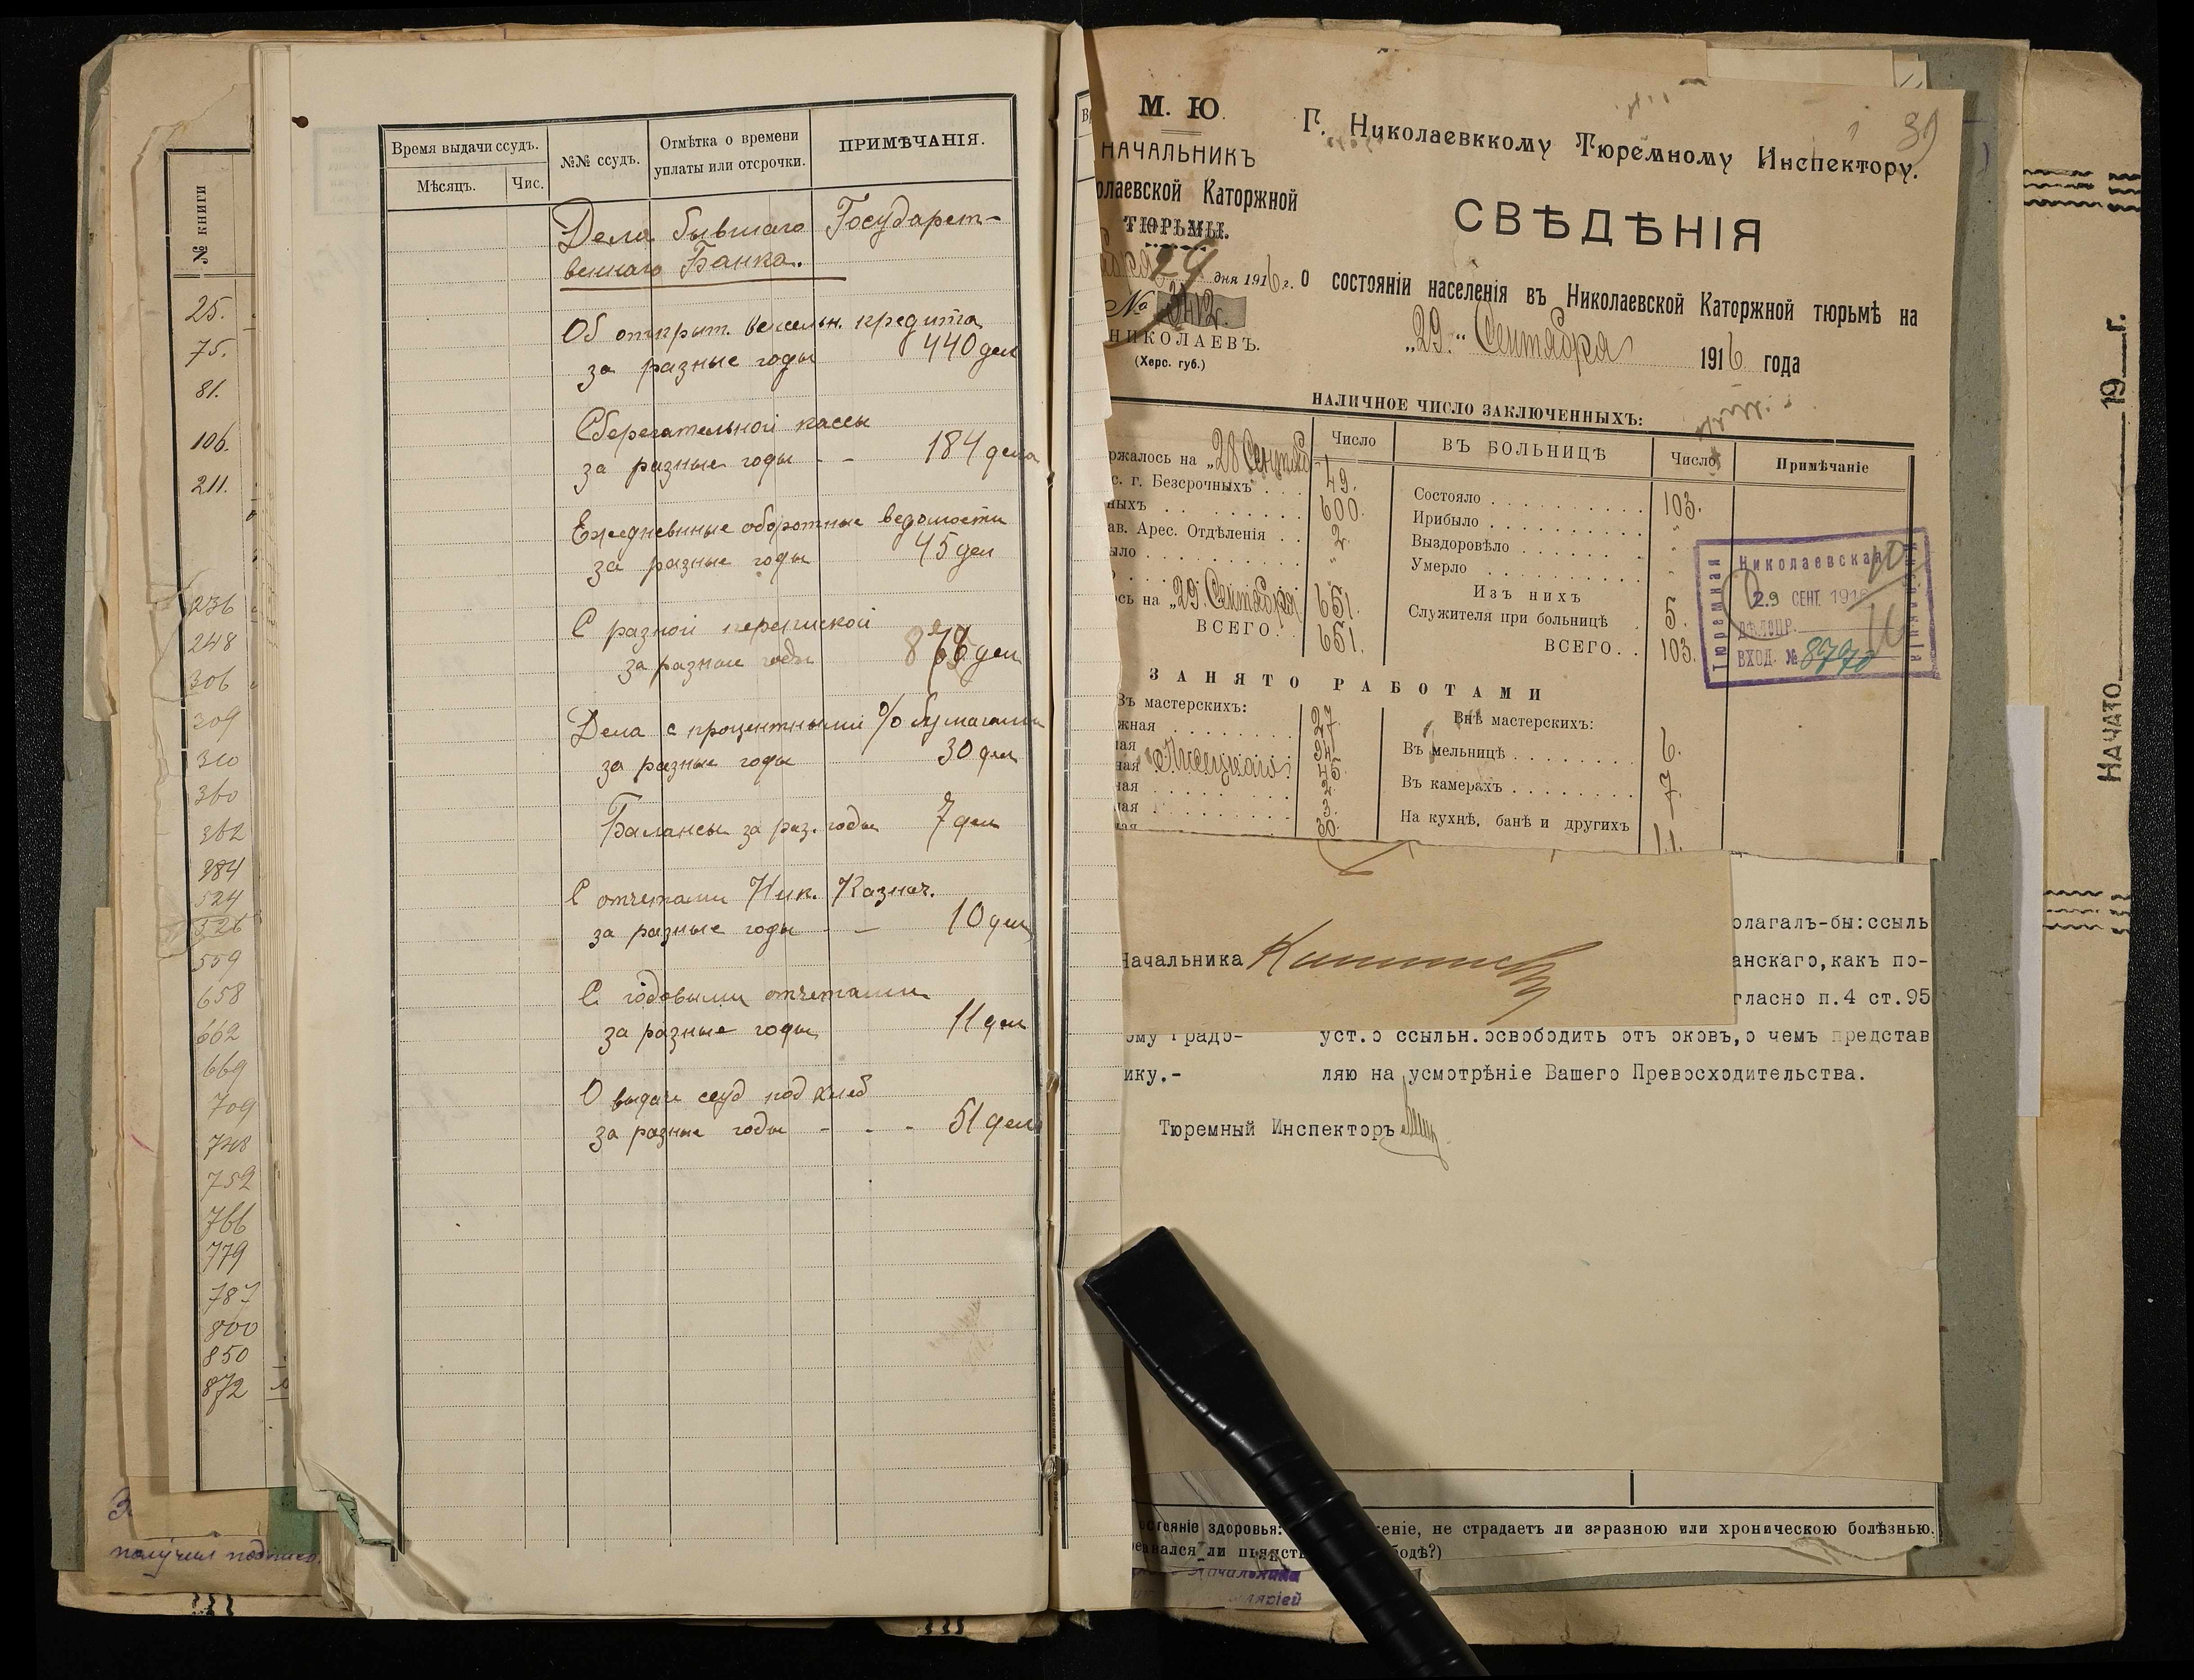 № книги
25.
75.
81.
106.
211.
236
248
306
309
310
360
362
384
524
526
559
658
662
669
709
748
752
766
779
787
800
850
872
получил подпись
Время выдачи ссудъ.
Мѣсяцъ.
Чис.
№№ ссудъ.
Отмѣтка о времени
уплаты или отсрочки.
ПРИМѢЧАНІЯ.
Дела бывшаго Государст-
веннаго Банка.
Об открыт. вексельн. кредита
за разные годы 440 дел
Сберегательной кассы
за разные годы - - 184 дела
Ежедневные оборотные ведомости
за разные годы 45 дел
С разной перепиской
за разные годы дел
Дела с процентными % бумагами
за разные годы 30 дел
Балансы за раз. годы 7 дел
С отчетами Ник. Казнач.
за разные годы - - 10 дел
С годовыми отчетами
за разные годы 11 дел
О выдаче ссуд под хлеб
за разные годы - - - 51 дел
М. Ю.
НАЧАЛЬНИКЪ
олаевской Каторжной
ТЮРЬМЫ.
29 дня 1916 г.
№ 3412
НИКОЛАЕВЪ.
(Херс. губ.)
39
Г. Николаевккому Тюремному Инспектору.
СВѢДѢНІЯ
о состояніи населенія въ Николаевской Каторжной тюрьмѣ на
„29.“ Сентября 1916 года
НАЛИЧНОЕ ЧИСЛО ЗАКЛЮЧЕННЫХЪ:
Число
ВЪ БОЛЬНИЦѢ
Число
Примѣчаніе
ржалось на „28 Сентяб
с. г. Безсрочныхъ . . . 49.
ныхъ . . . 600.
ав. Арес. Отдѣленія . . 2.
ыло . . . "
сь на „29. Сентября 651.
ВСЕГО. . 651.
Состояло . . . 103.
Ирибыло . . . "
Выздоровѣло . . . "
Умерло . . . "
Изъ нихъ
Служителя при больницѣ . 5.
ВСЕГО. . 103.
Николаевская
Тюремная
Инспекція
29 СЕНТ. 1916
ДѢЛОПР.
ВХОД. № 8770
ЗАНЯТО РАБОТАМИ
Въ мастерскихъ:
жная . . . 27.
ная 34.
ная 45.
ная . . . 2.
ная . . . 3.
ная 30.
Внѣ мастерскихъ:
Въ мельницѣ . . . 6.
Въ камерахъ . . . 7.
На кухнѣ, банѣ и другихъ 11.
Начальника
олагалъ-бы:ссыль
анскаго,какъ по-
гласно п.4 ст.95
ому Градо-
уст.о ссыльн.освободить отъ оковъ,о чемъ представ
ику.-
ляю на усмотрѣніе Вашего Превосходительства.
Тюремный Инспекторъ
остояніе здоровья: еніе, не страдаетъ ли заразною или хроническою болѣзнью.
ревался ли пьянств бодѣ?)
Начальника
ляріей
НАЧАТО 19 г.